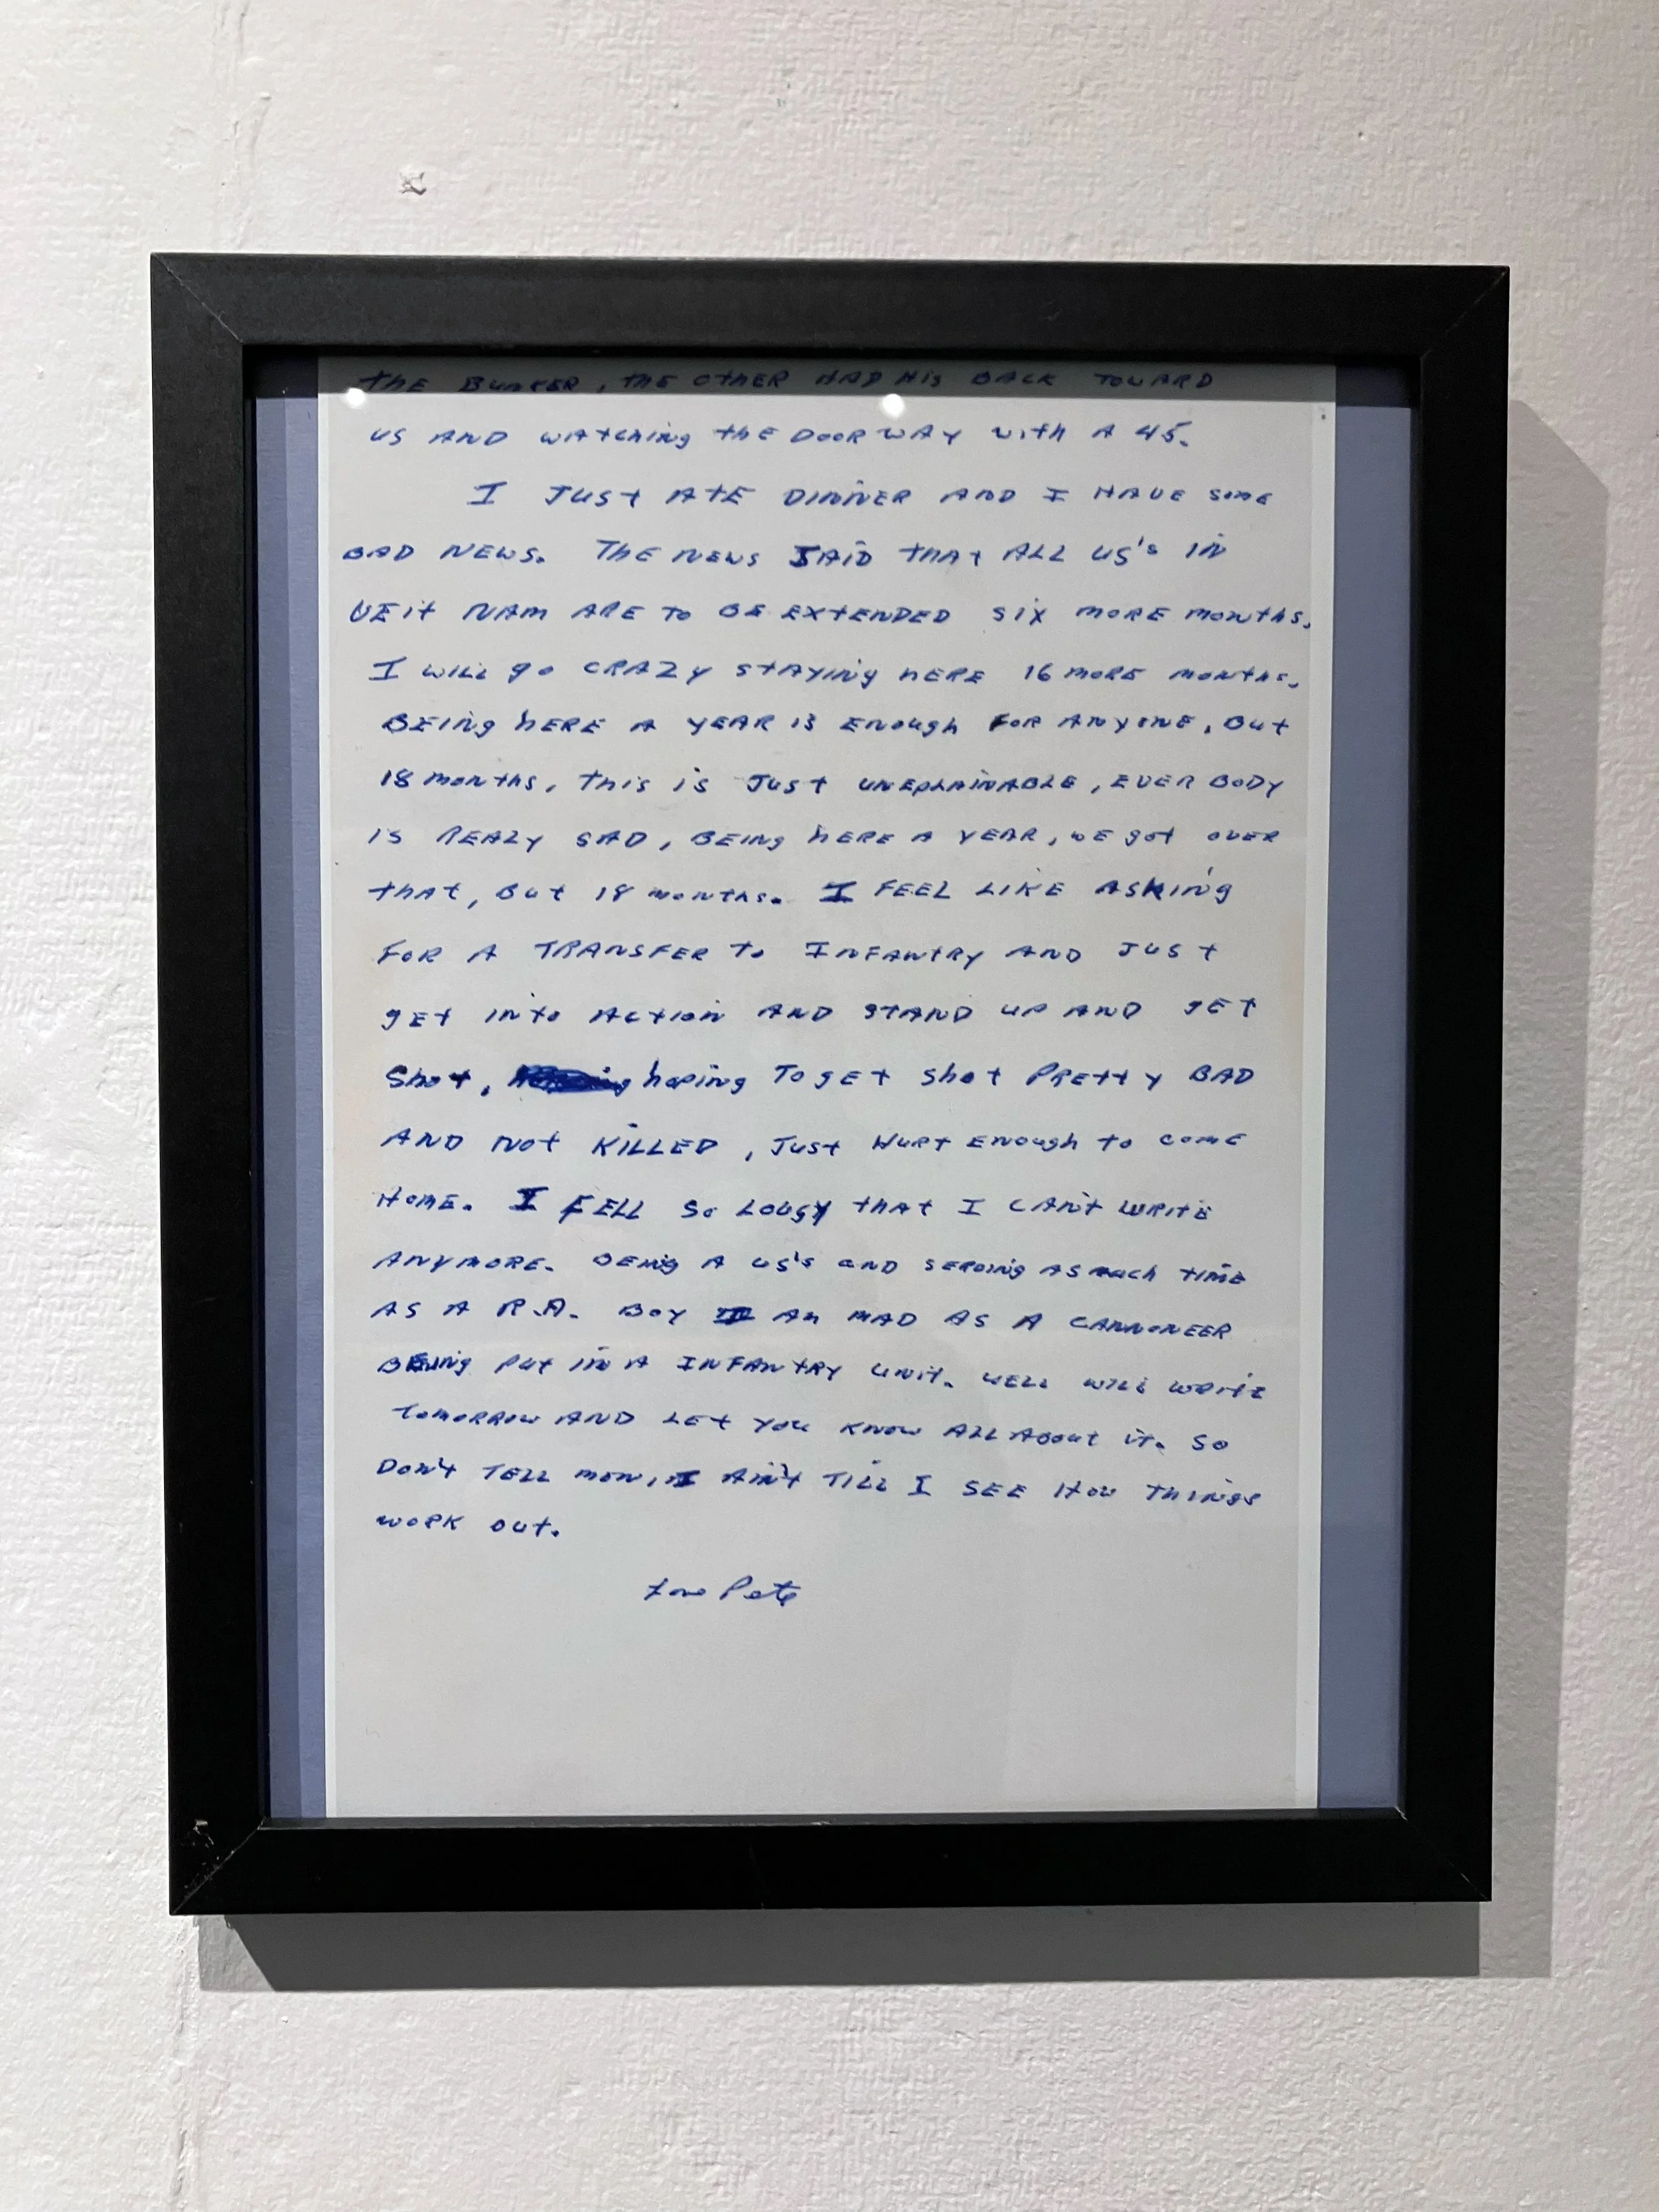 THE BUNKER, THE OTHER HAD HIS BACK TOWARD
US AND WATCHING THE DOORWAY WITH A 45.
I JUST ATE DINNER AND I HAVE SOME
BAD NEWS. THE NEWS SAID THAT ALL US'S IN
VEIT NAM ARE TO BE EXTENDED SIX MORE MONTHS.
I WILL GO CRAZY STAYING HERE 16 MORE MONTHS.
BEING HERE A YEAR IS ENOUGH FOR ANYONE, BUT
18 MONTHS, THIS IS JUST UNEPLAINABLE, EVER BODY
IS REALY SAD, BEING HERE A YEAR, WE GOT OVER
THAT, BUT 18 MONTHS. I FEEL LIKE ASKING
FOR A TRANSFER TO INFANTRY AND JUST
GET INTO ACTION AND STAND UP AND GET
SHOT, HOPING TO GET SHOT PRETTY BAD
AND NOT KILLED, JUST HURT ENOUGH TO COME
HOME. I FELL SO LOUSY THAT I CAN'T WRITE
ANYMORE. BEING A US'S AND SERVING AS MUCH TIME
AS A R.A. BOY I AM MAD AS A CANNONEER
BEING PUT IN A INFANTRY UNIT. WELL WILL WRITE
TOMORROW AND LET YOU KNOW ALL ABOUT IT. SO
DON'T TELL MOM, I AIN'T TILL I SEE HOW THINGS
WORK OUT.
Love Pete